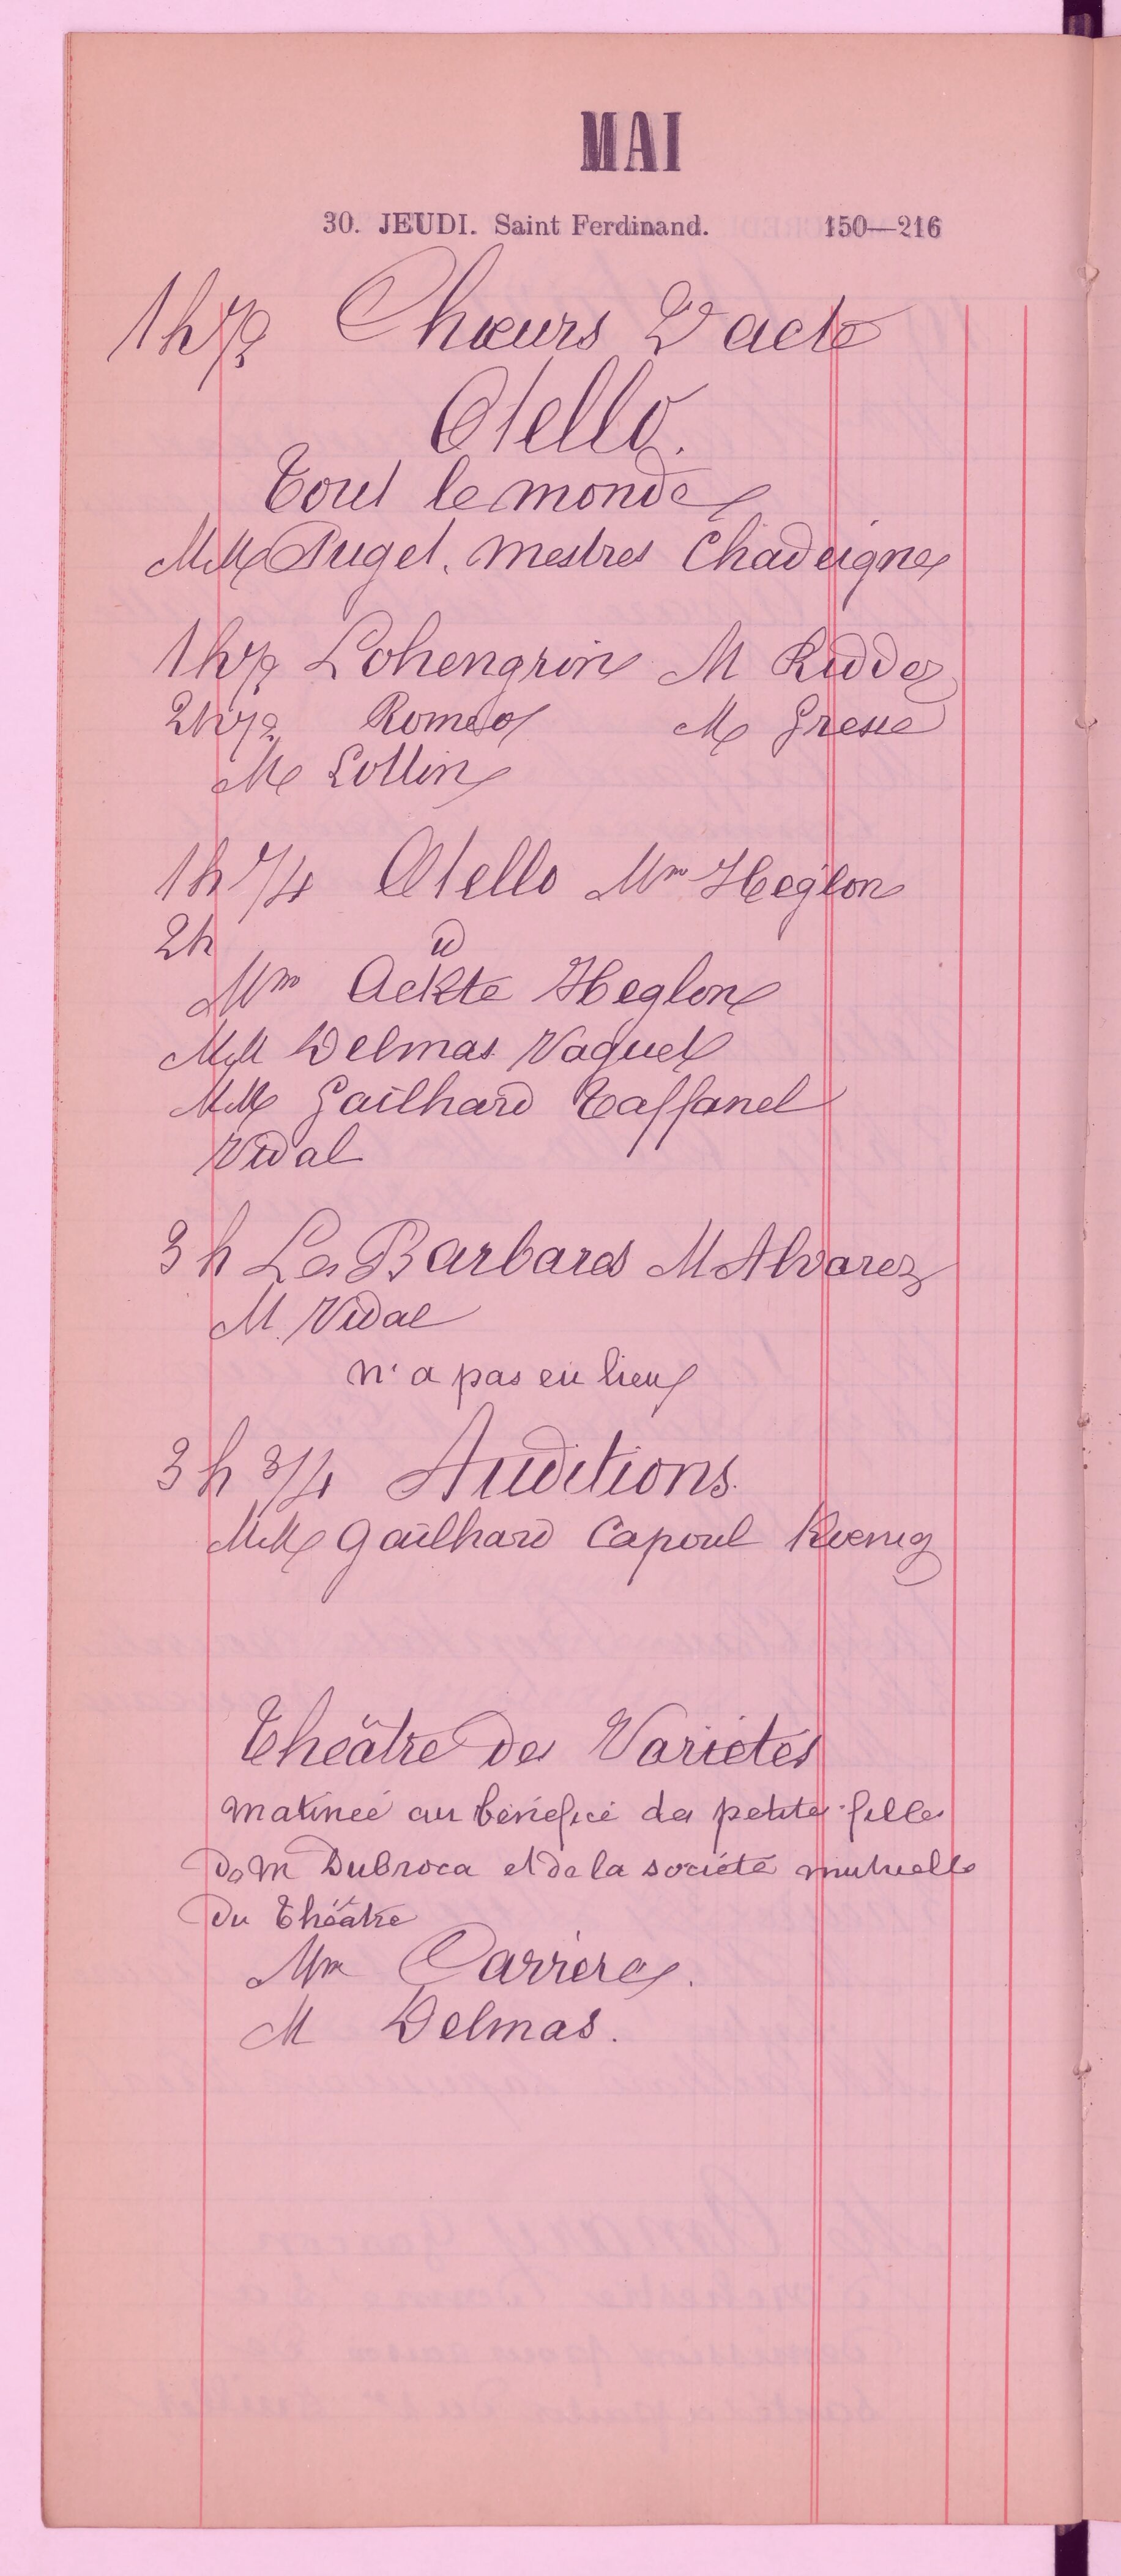 MAI
30. JEUDI. Saint Ferdinand. 150—216
1h1/2 Chœurs 2 acte
Otello.
Tout le monde
MM Puget, Mestres Chadeigne
1h1/2 Lohengrin M Riddez
2h1/2 Roméo M Gresse
M Lottin
1h 1/4 Otello Mme Heglon
2h id
Mme Ackte Heglon
MM Delmas Vaguet
MM Gailhard Taffanel
Vidal
3 h Les Barbares M Alvarez
M. Vidal
n'a pas eu lieu
3 h 3/4 Auditions.
MM Gailhard Capoul Koenig
Théâtre des Variétés
matineé au bénéfice des petites filles
de M Dubroca et de la société mutuelle
du Théâtre
Mme Carrère.
M Delmas.